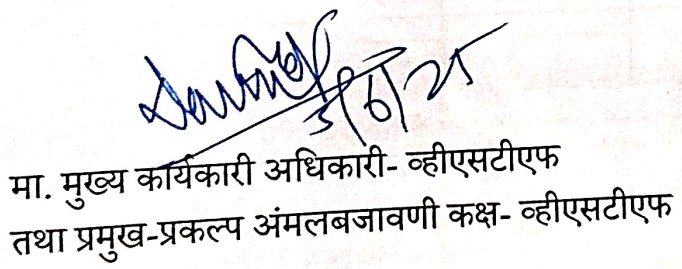 मा. मुख्य कार्यकारी अधिकारी- व्हीएसटीएफ
तथा प्रमुख-प्रकल्प अंमलबजावणी कक्ष- व्हीएसटीएफ